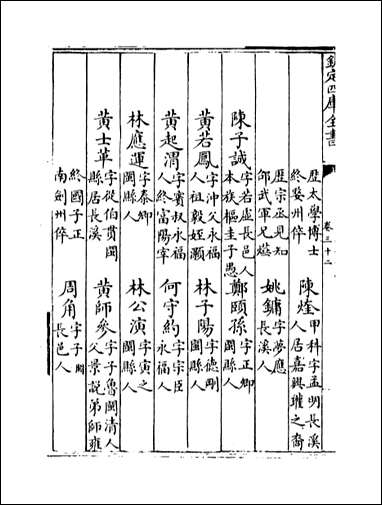 欽定四庫全書
卷三十二
歷太學博士
終婺州倅
陳煃
甲科字孟明長溪
人居嘉興瓘之裔
歷宗丞見知
邵武軍兄爚
姚鏞
字夢應
長溪人
陳子誠
字若虛長邑人
本族樞圭子愚
鄭頤孫
字正卿
閩縣人
黃若鳳
字沖父永福
人祖毅姪灝
林子陽
字德剛
閩縣人
黃起渭
字賓叔永福
人終富陽宰
何守約
字宗臣
永福人
林應運
字泰卿
閩縣人
林公演
字寅之
閩縣人
黃士革
字從伯貫閩
縣居長溪
黃師參
字子魯閩清人
父景說弟師雍
終國子正
南劍州倅
周角
字子
長邑人